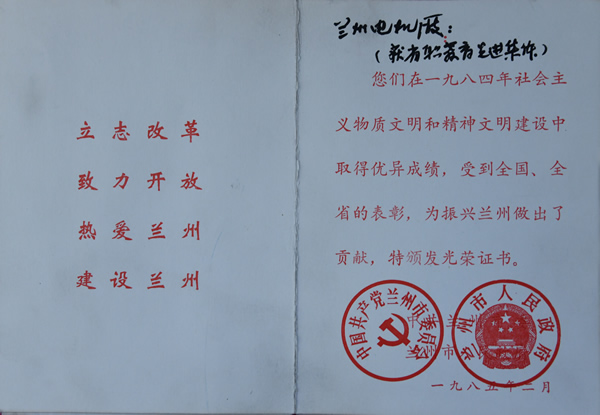 立志改革
致力开放
热爱兰州
建设兰州
兰州电机厂：
（获省职教育先进集体）
您们在一九八四年社会主
义物质文明和精神文明建设中
取得优异成绩，受到全国、全
省的表彰，为振兴兰州做出了
贡献，特颁发光荣证书。
中国共产党兰州市委员会
兰州市人民政府
中共兰州
兰州市
一九八五年二月